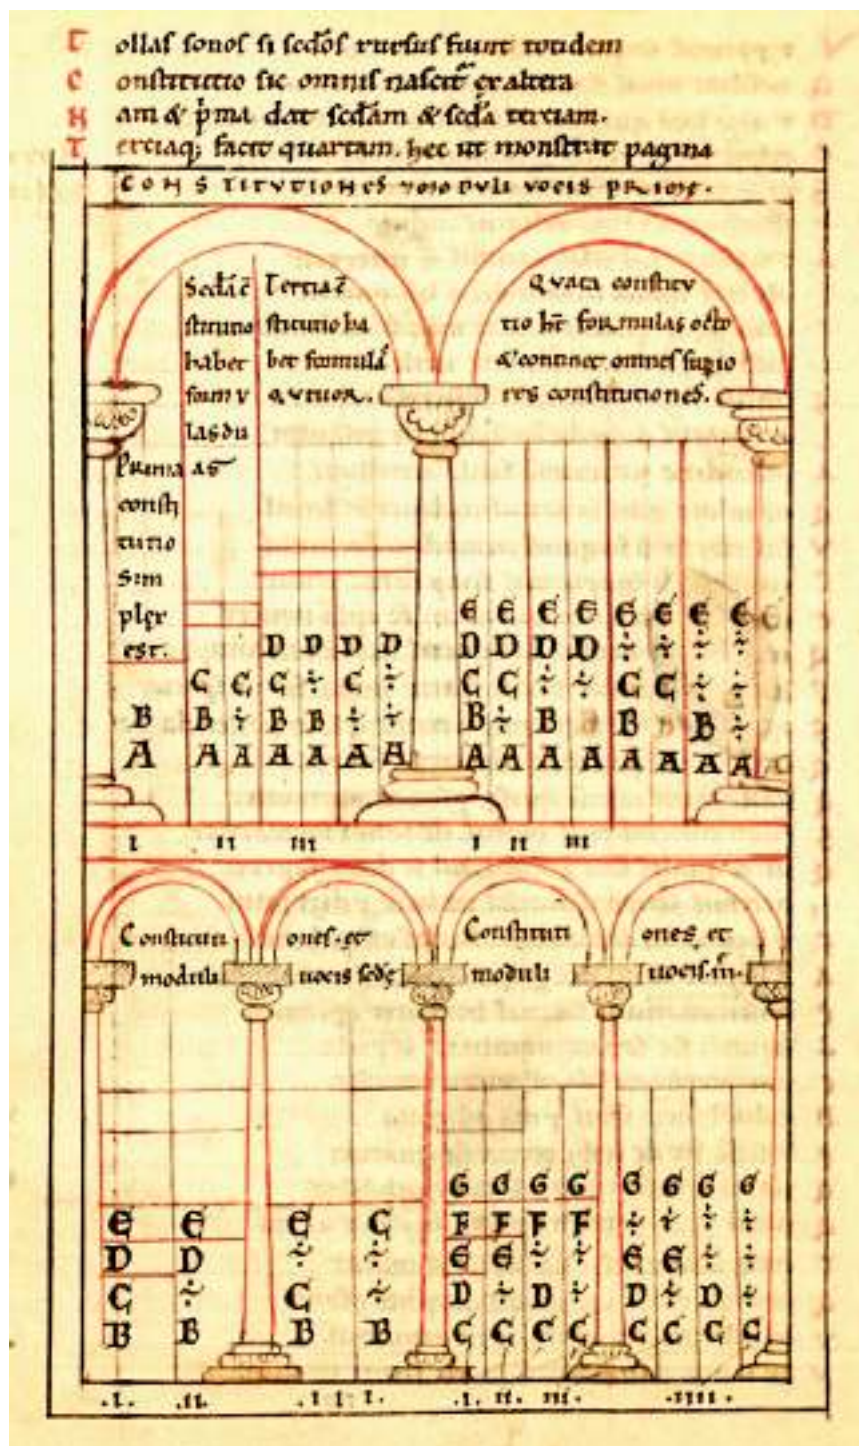 Tollas sonos si scdos rursus fiunt totidem
Constitutio sic omnis nascit' ex altera
Nam & p'ma dat scdam & scda terciam.
Terciaq; facit quartam. hec ut monstrat pagina
CONSTITVTIONES MODVLI VOCIS PRIME.
Scda c̄
stitutio
habet
formv
las du
as
Tertia c̄
stitutio ha
bet formulā
qvtuor.
Qvarta constitv
tio ht formulas octo
& continet omnes supio
res constitutiones.
Prima
consti
tutio
sim
plex
est.
E E E E E E E E
D D D D D D D D ÷ ÷ ÷ ÷
C C C ÷ C ÷ C C ÷ ÷ C C ÷ ÷
B B ÷ B B ÷ ÷ B ÷ B ÷ B ÷ B ÷
A A A A A A A A A A A A A A A
I II III I II III
Constituti ones. et
moduli uocis scde
Constituti ones et
moduli uocis .III.
G G G G G G G G
E E E C F F F F ÷ ÷ ÷ ÷
D D ÷ ÷ E E ÷ ÷ E E ÷ ÷
C ÷ C ÷ D ÷ D ÷ D ÷ D ÷
B B B B C C C C C C C C
.I. .II. .III. .I. II. III. .IIII.